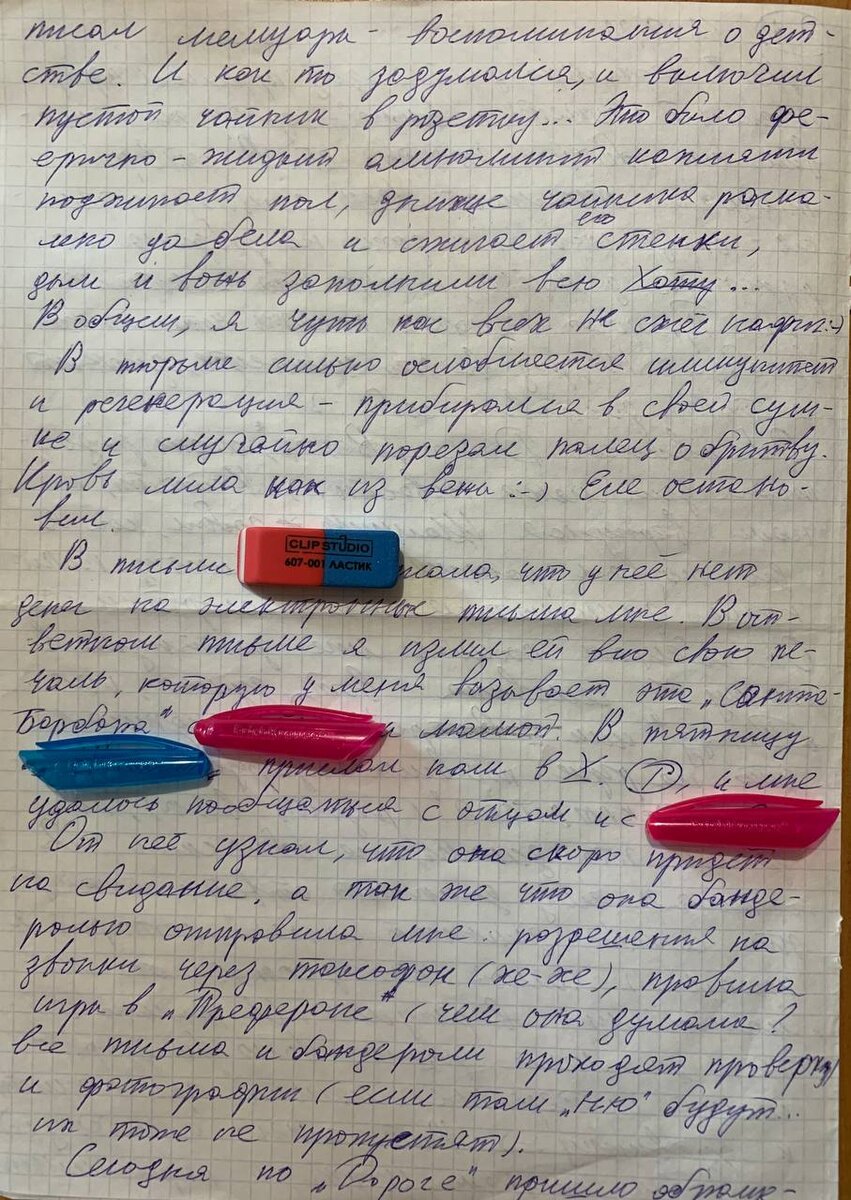 писал мемуары - воспоминания о дет-
стве. И как то задумался, и включил
пустой чайник в розетку... Это было фе-
ерично - жидкий алюминий каплями
поджигает пол, днище чайника раска-
лено до бела и сжигает его стенки,
дым и вонь заполнили всю Хату...
В общем, я чуть нас всех не сжёг нафиг :-)
В тюрьме сильно ослабляется иммунитет
и регенерация - прибирался в своей сум-
ке и случайно порезал палец о бритву.
Кровь лила как из вены :-) Еле остано-
вил.
CLIP STUDIO
607-001 ЛАСТИК
В письме что у неё нет
денег на электронные письма мне. В от-
ветном письме я излил ей всю свою пе-
чаль, которую у меня вызывает эта „Санта-
Барбара" мамой. В пятницу
прислал нам в Х. Т, и мне
удалось пообщаться с отцом и с
От неё узнал, что она скоро придет
на свидание, а так же что она банде-
ролью отправила мне: разрешения на
звонки через таксофон (хе-хе), правила
игры в „Преферанс" (чем она думала?
все письма и бандероли проходят проверку)
и фотографии (если там „Ню" будут..
их тоже не пропустят).
Сегодня по „Дороге" пришло